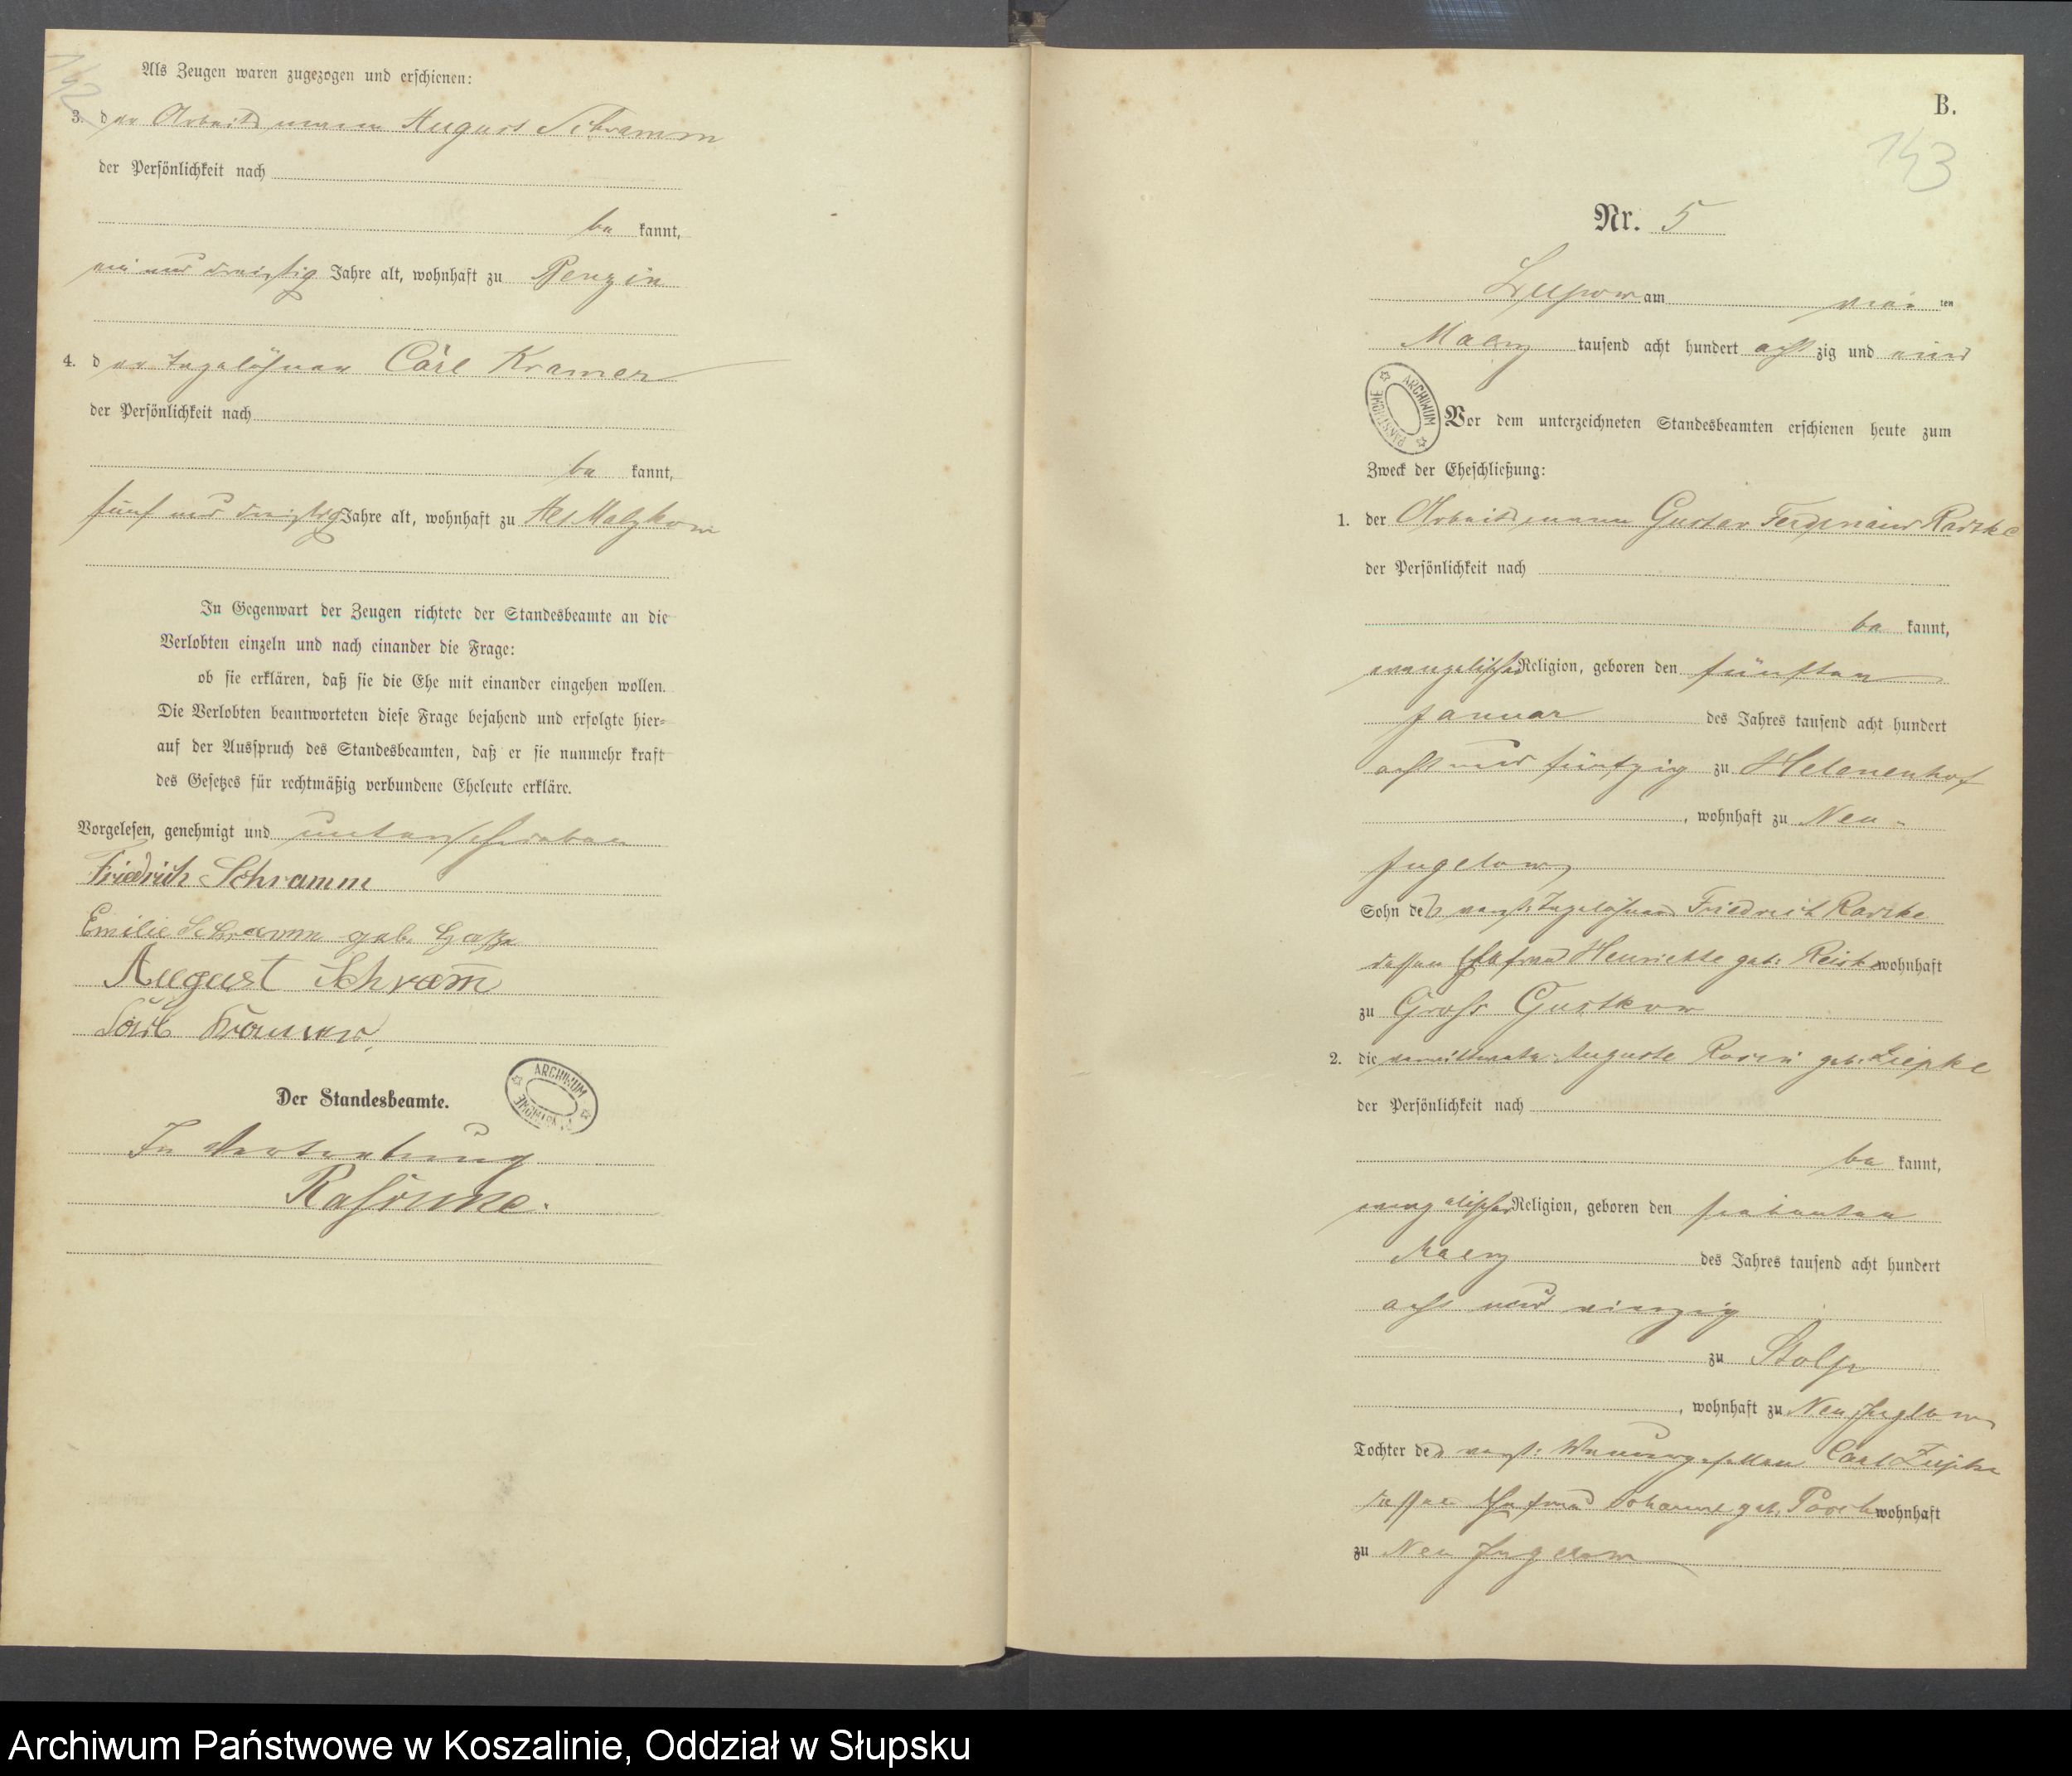 142
Als Zeugen waren zugezogen und erschienen:
3. der Arbeitsmann August Schramm
der Persönlichkeit nach
be kannt,
ein und dreißig Jahre alt, wohnhaft zu Penzin
4. der Tagelöhner Carl Kramer
der Persönlichkeit nach
be kannt,
fünf und dreißig Jahre alt, wohnhaft zu Alt Malzkow
In Gegenwart der Zeugen richtete der Standesbeamte an die
Verlobten einzeln und nach einander die Frage:
ob sie erklären, daß sie die Ehe mit einander eingehen wollen.
Die Verlobten beantworteten diese Frage bejahend und erfolgte hier-
auf der Ausspruch des Standesbeamten, daß er sie nunmehr kraft
des Gesetzes für rechtmäßig verbundene Eheleute erkläre.
Vorgelesen, genehmigt und unterschrieben
Friedrich Schramm
Emilie Schramm geb.
August Schram̅
Carl Kramer
Der Standesbeamte.
ARCHIWUM PAŃSTWOWE
In Vertretung
B.
143
Nr. 5
Lupow am vier ten
Maerz tausend acht hundert acht zig und eins
ARCHIWUM PAŃSTWOWE
Vor dem unterzeichneten Standesbeamten erschienen heute zum
Zweck der Eheschließung:
1. der Arbeitsmann Gustav Ferdinand Radtke
der Persönlichkeit nach
be kannt,
evangelischer Religion, geboren den fünften
Januar des Jahres tausend acht hundert
acht und fünfzig zu Helenenhof
, wohnhaft zu Neu-
Jugelow
Sohn des verst: Tagelöhners Friedrich Radtke
dessen Ehefrau Henriette geb: wohnhaft
zu Gross Gustkow
2. die verwittwete Auguste geb: Liepke
der Persönlichkeit nach
be kannt,
evangelischer Religion, geboren den siebenten
Maerz des Jahres tausend acht hundert
acht und vierzig
zu Stolp
, wohnhaft zu Neu Jugelow
Tochter des verst: Maurergesellen Carl Liepke
dessen Ehefrau Johanne geb. wohnhaft
zu Neu Jugelow
Archiwum Państwowe w Koszalinie, Oddział w Słupsku